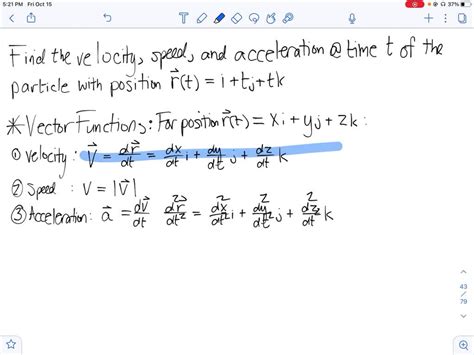 5:21 PM Fri Oct 15
37%
Find the velocity, speed, and acceleration @ time t of the
particle with position r⃗(t) = i + tj + tk
*Vector Functions: For position r⃗(t) = xi + yj + zk:
① Velocity: V⃗ = dr⃗/dt = dx/dt i + dy/dt j + dz/dt k
② Speed: V = |V⃗|
③ Acceleration: a⃗ = dv⃗/dt d²r⃗/dt² = d²x/dt² i + d²y/dt² j + d²z/dt² k
43
/
79